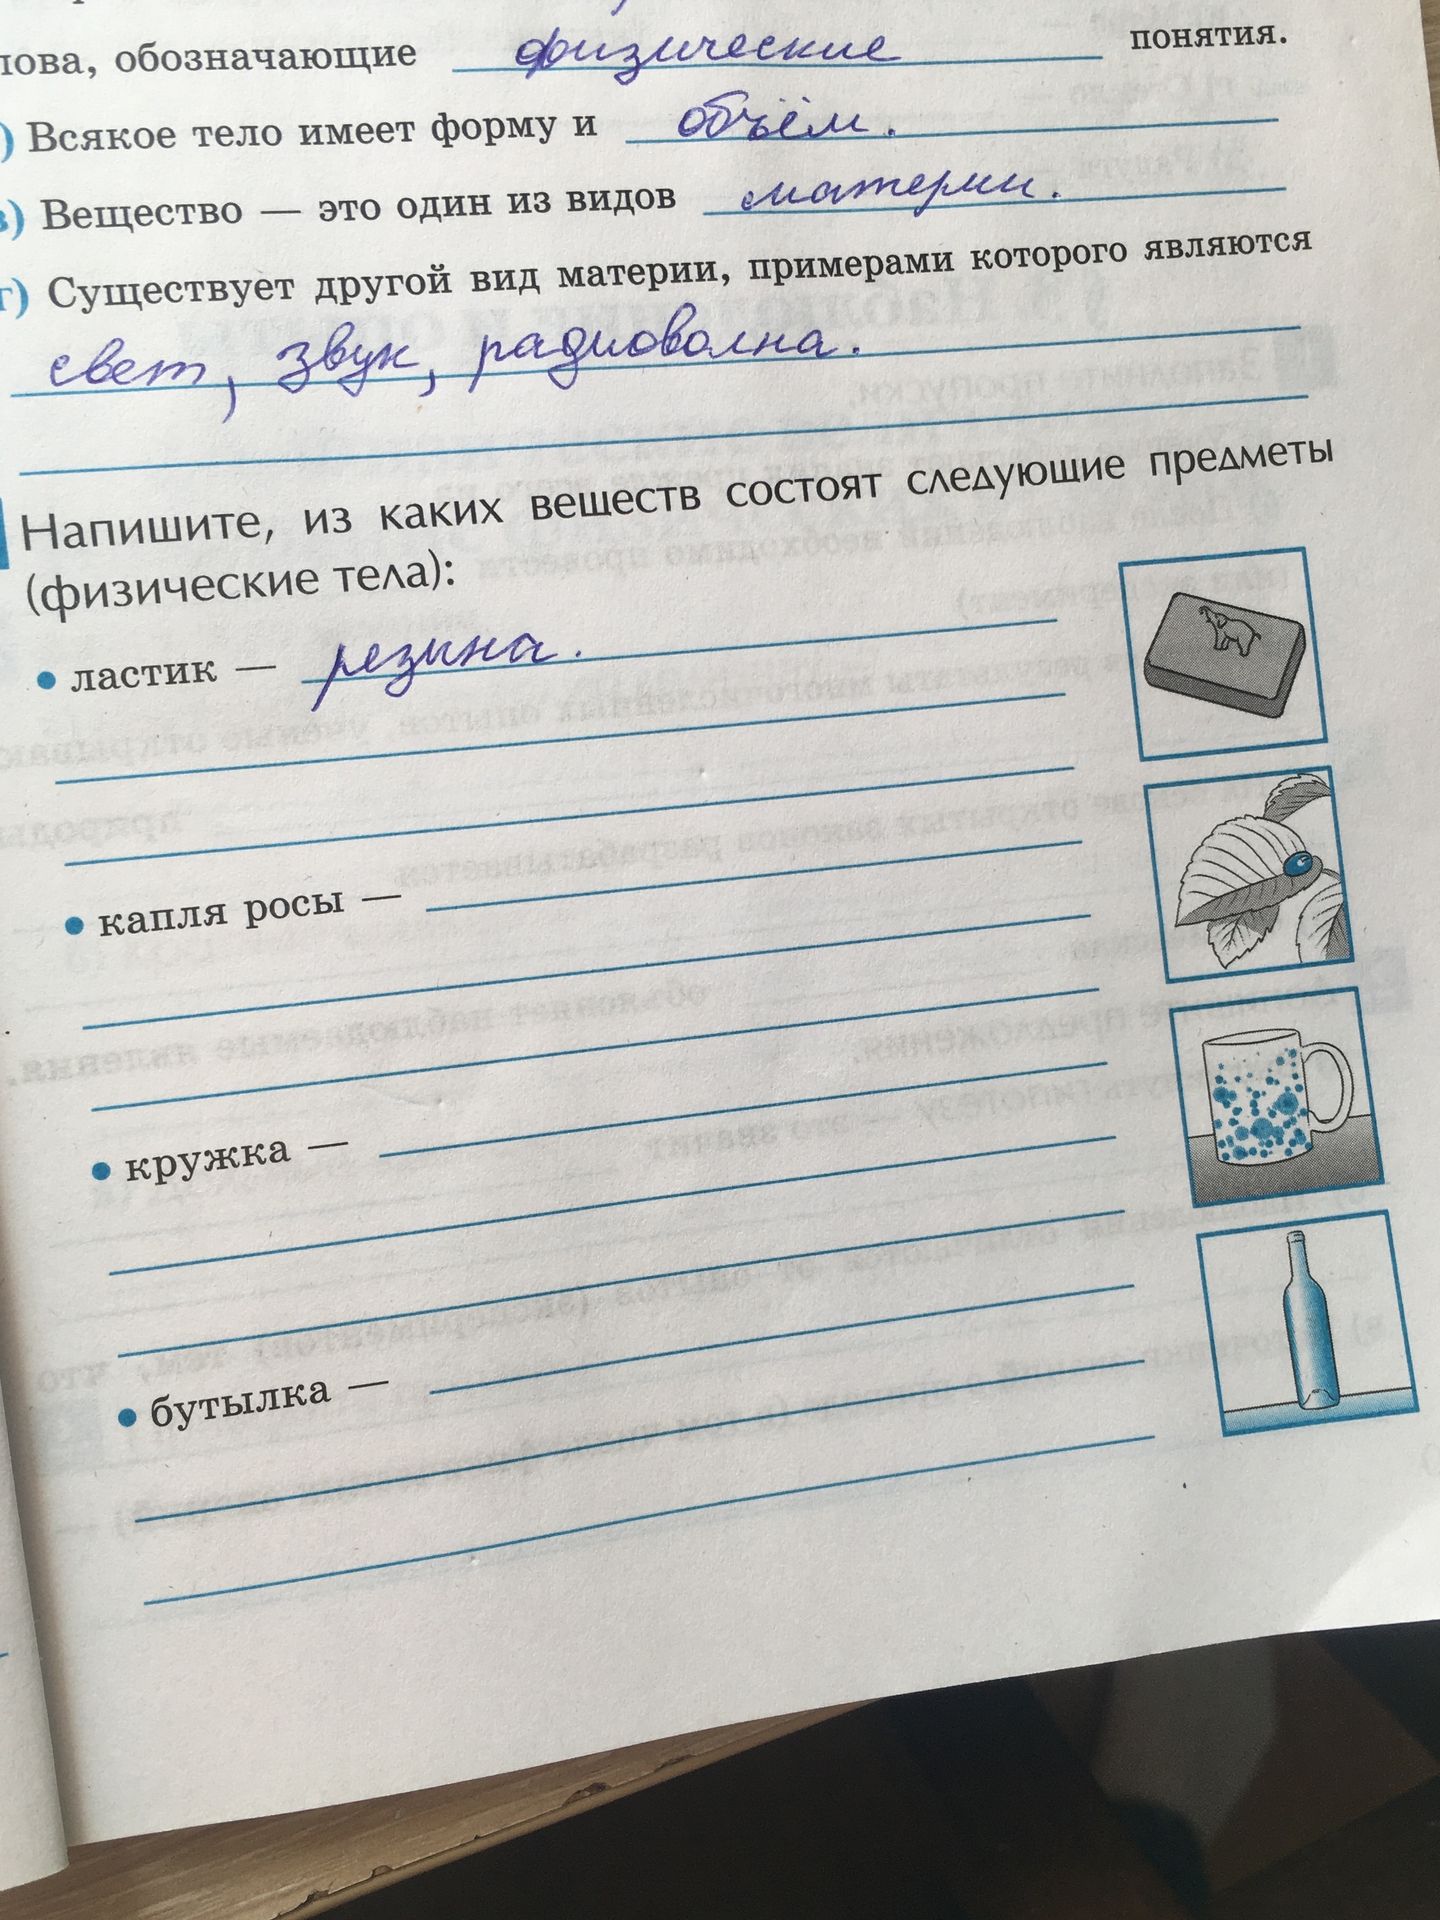 лова, обозначающие физические понятия.
) Всякое тело имеет форму и объём.
в) Вещество — это один из видов материи.
г) Существует другой вид материи, примерами которого являются
свет, звук, радиоволна.
Напишите, из каких веществ состоят следующие предметы
(физические тела):
• ластик — резина.
• капля росы —
• кружка —
• бутылка —